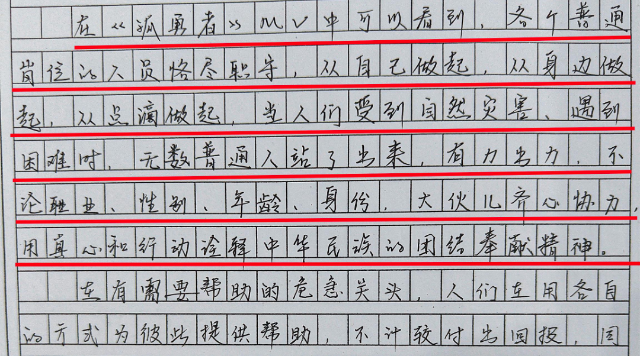 在《孤勇者》MV中可以看到，各个普通
岗位的人员恪尽职守，从自己做起，从身边做
起，从点滴做起，当人们受到自然灾害、遇到
困难时，无数普通人站了出来，有力出力，不
论职业、性别、年龄、身份，大伙儿齐心协力，
用真心和行动诠释中华民族的团结奉献精神。
在有需要帮助的危急关头，人们在用各自
的方式为彼此提供帮助，不计较付出回报，因